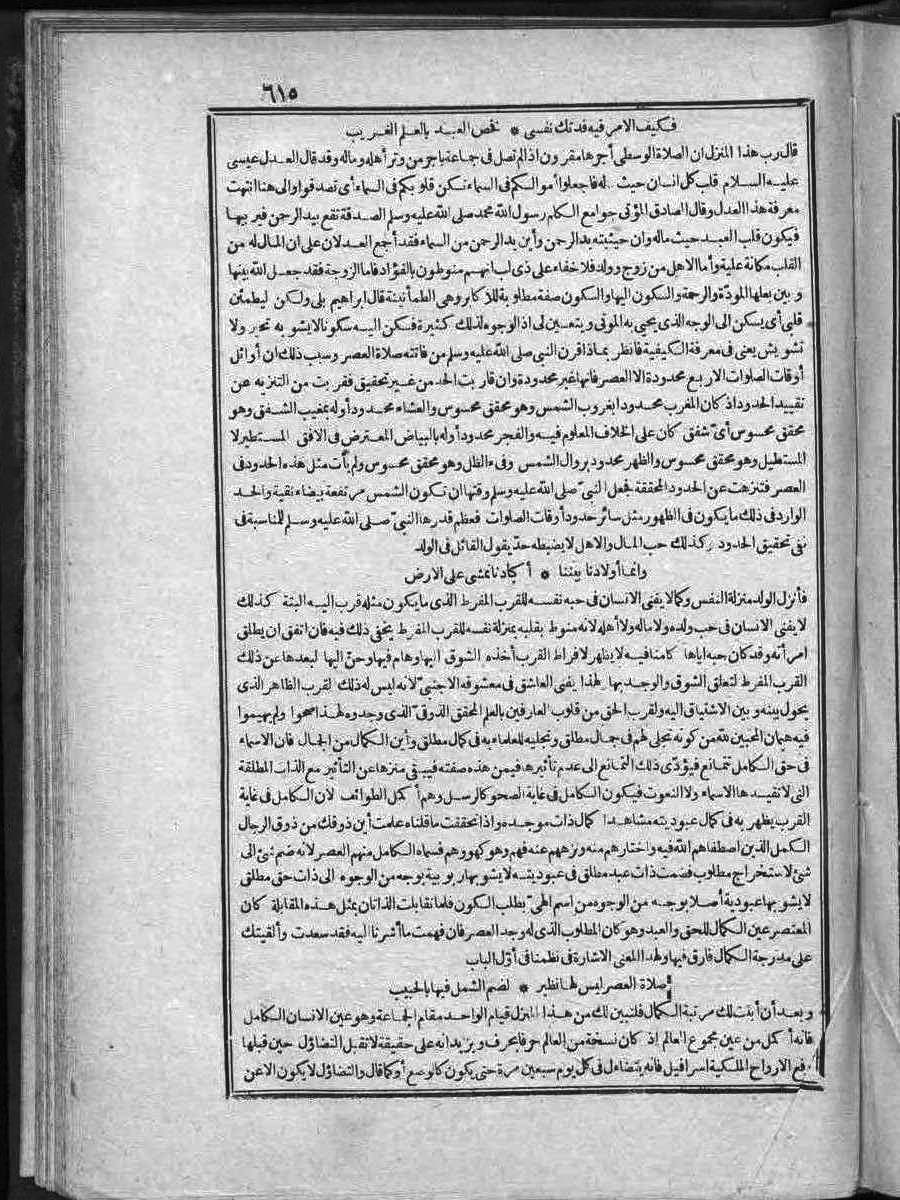 ٦١٥
فكيف الامر فيه فدتك نفسى * تخص العبد بالعلم الغريب
قال رب هذا المنزل ان الصلاة الوسطى أجرها مقرون اذا لم تصل فى جماعة باجر من وتر أهله وماله وقد قال العدل عيسى
عليه السلام قلب كل انسان حيث ماله فاجعلوا أموالكم فى السماء تكن قلوبكم فى السماء أى تصدقوا والى هنا انتهت
معرفة هذا العدل وقال الصادق المؤتى جوامع الكلم رسول الله محمد صلى الله عليه وسلم الصدقة تقع بيد الرحمن فيربيها
فيكون قلب العبد حيث ماله وان حيثيته يد الرحمن وأين يد الرحمن من السماء فقد أجمع العدلان على ان المال له من
القلب مكانة علية وأما الاهل من زوج وولد فلا خفاء على ذى لب انهم منوطون بالفؤاد فاما الزوجة فقد جعل الله بينها
وبين بعلها المودّة والرحمة والسكون اليها والسكون صفة مطلوبة للأكابر وهى الطمأنينة قال ابراهيم بلى ولكن ليطمئن
قلبى أى يسكن الى الوجه الذى يحيى به الموتى ويتعين لى اذ الوجوه لذلك كثيرة فسكن اليه سكونا لا يشوبه تحير ولا
تشويش يعنى فى معرفة الكيفية فانظر بماذا قرن النبى صلى الله عليه وسلم من فاتته صلاة العصر وسبب ذلك ان أوائل
أوقات الصلوات الاربع محدودة الا العصر فانها غير محدودة وان قاربت الحد من غير تحقيق فقربت من التنزيه عن
تقييد الحدود اذ كان المغرب محدودا بغروب الشمس وهو محقق محسوس والعشاء محدود أوله بمغيب الشفق وهو
محقق محسوس أىّ شفق كان على الخلاف المعلوم فيه والفجر محدود أوله بالبياض المعترض فى الافق المستطير لا
المستطيل وهو محقق محسوس والظهر محدود بزوال الشمس وفىء الظل وهو محقق محسوس ولم يأت مثل هذه الحدود فى
العصر فتنزهت عن الحدود المحققة فجعل النبىّ صلى الله عليه وسلم وقتها ان تكون الشمس مرتفعة بيضاء نقية والحد
الوارد فى ذلك ما يكون فى الظهور مثل سائر حدود أوقات الصلوات فعظم قدرها النبىّ صلى الله عليه وسلم للمناسبة فى
نفى تحقيق الحدود وكذلك حب المال والاهل لا يضبطه حدّ يقول القائل فى الولد
وانما أولادنا بيننا * أكبادنا تمشى على الارض
فأنزل الولد منزلة النفس وكما لا يفنى الانسان فى حبه نفسه للقرب المفرط الذى ما يكون مثله قرب اليه البتة كذلك
لا يفنى الانسان فى حب ولده ولا ماله ولا أهله لانه منوط بقلبه بمنزلة نفسه للقرب المفرط يخفى ذلك فيه فان اتفق ان يطلق
امرأته وقد كان حبه اياها كامنا فيه لا يظهر لافراط القرب أخذه الشوق اليها وهام فيها وحنّ اليها لبعدها عن ذلك
القرب المفرط لتعلق الشوق والوجد بها لهذا يفنى العاشق فى معشوقه الاجنبىّ لانه ليس له ذلك القرب الظاهر الذى
يحول بينه وبين الاشتياق اليه ولقرب الحق من قلوب العارفين بالعلم المحقق الذوقىّ الذى وجدوه لهذا صحوا ولم يهيموا
فيه هيمان المحبين لله من كونه تجلى لهم فى جمال مطلق وتجليه للعلماء به فى كمال مطلق وأين الكمال من الجمال فان الاسماء
فى حق الكامل تتمانع فيؤدّى ذلك التمانع الى عدم تأثيرها فيمن هذه صفته فيبقى منزها عن التأثير مع الذات المطلقة
التى لا تقيدها الاسماء ولا النعوت فيكون الكامل فى غاية الصحو كالرسل وهم أكمل الطوائف لان الكامل فى غاية
القرب يظهر به فى كمال عبوديته مشاهدا كمال ذات موجده واذا تحققت ما قلناه علمت أين ذوقك من ذوق الرجال
الكمل الذين اصطفاهم الله فيه واختارهم منه ونزههم عنه فهم وهو كهو وهم فسماه الكامل منهم العصر لانه ضم شئ الى
شئ لاستخراج مطلوب فضمت ذات عبد مطلق فى عبوديته لا يشوبها ربوبية بوجه من الوجوه الى ذات حق مطلق
لا يشوبها عبودية أصلا بوجه من الوجوه من اسم الهىّ بطلب الكون فلما تقابلت الذاتان بمثل هذه المقابلة كان
المعتصر عين الكمال للحق والعبد وهو كان المطلوب الذى له وجد العصر فان فهمت ما أشرنا اليه فقد سعدت وألقيتك
على مدرجة الكمال فارق فيها ولهذا المعنى الاشارة فى نظمنا فى أوّل الباب
صلاة العصر ليس لها نظير * لضم الشمل فيها بالحبيب
وبعد أن أبنت لك مرتبة الكمال فلنبين لك من هذا المنزل قيام الواحد مقام الجماعة وهو عين الانسان الكامل
فانه أكمل من عين مجموع العالم اذ كان نسخة من العالم حرفا بحرف ويزيد انه على حقيقة لا تقبل التضاؤل حين قبلها
أرفع الارواح الملكية اسرافيل فانه يتضاءل فى كل يوم سبعين مرة حتى يكون كالوصع أو كما قال والتضاؤل لا يكون الا عن